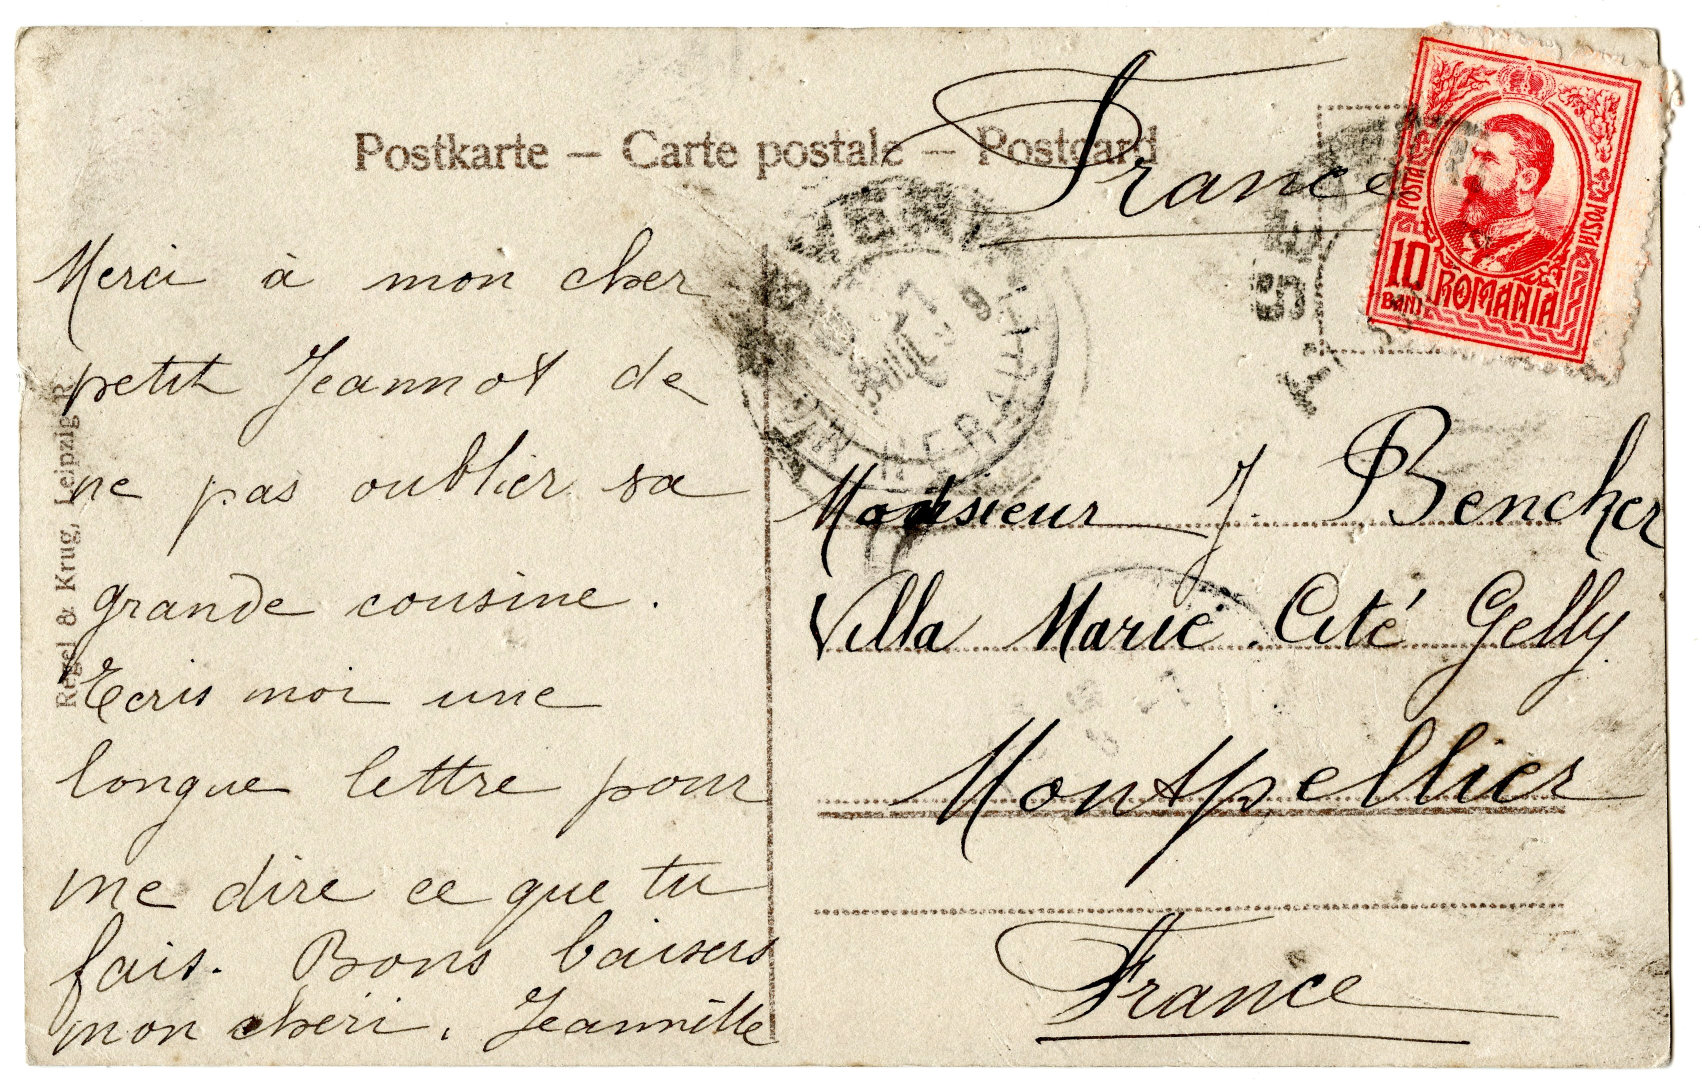 Postkarte – Carte postale – Postcard
France
POSTA
POSTA
10
BANI
ROMANIA
HERAULT
Merci à mon cher
petit Jeannot de
ne pas oublier sa
grande cousine.
Ecris moi une
longue lettre pour
me dire ce que tu
fais. Bons baisers
mon chéri. Jeannette
Regel & Krug, Leipzig R.
Monsieur J. Bencher
Villa Marie. Cité Gelly.
Montpellier
France